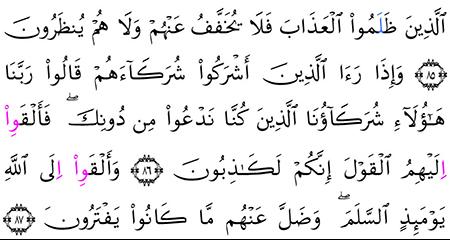 ٱلَّذِينَ ظَلَمُوا۟ ٱلْعَذَابَ فَلَا يُخَفَّفُ عَنْهُمْ وَلَا هُمْ يُنظَرُونَ
٨٥ وَإِذَا رَءَا ٱلَّذِينَ أَشْرَكُوا۟ شُرَكَآءَهُمْ قَالُوا۟ رَبَّنَا
هَٰٓؤُلَآءِ شُرَكَآؤُنَا ٱلَّذِينَ كُنَّا نَدْعُوا۟ مِن دُونِكَ ۖ فَأَلْقَوِا۟
إِلَيْهِمُ ٱلْقَوْلَ إِنَّكُمْ لَكَٰذِبُونَ ٨٦ وَأَلْقَوِا۟ إِلَى ٱللَّهِ
يَوْمَئِذٍ ٱلسَّلَمَ ۖ وَضَلَّ عَنْهُم مَّا كَانُوا۟ يَفْتَرُونَ ٨٧